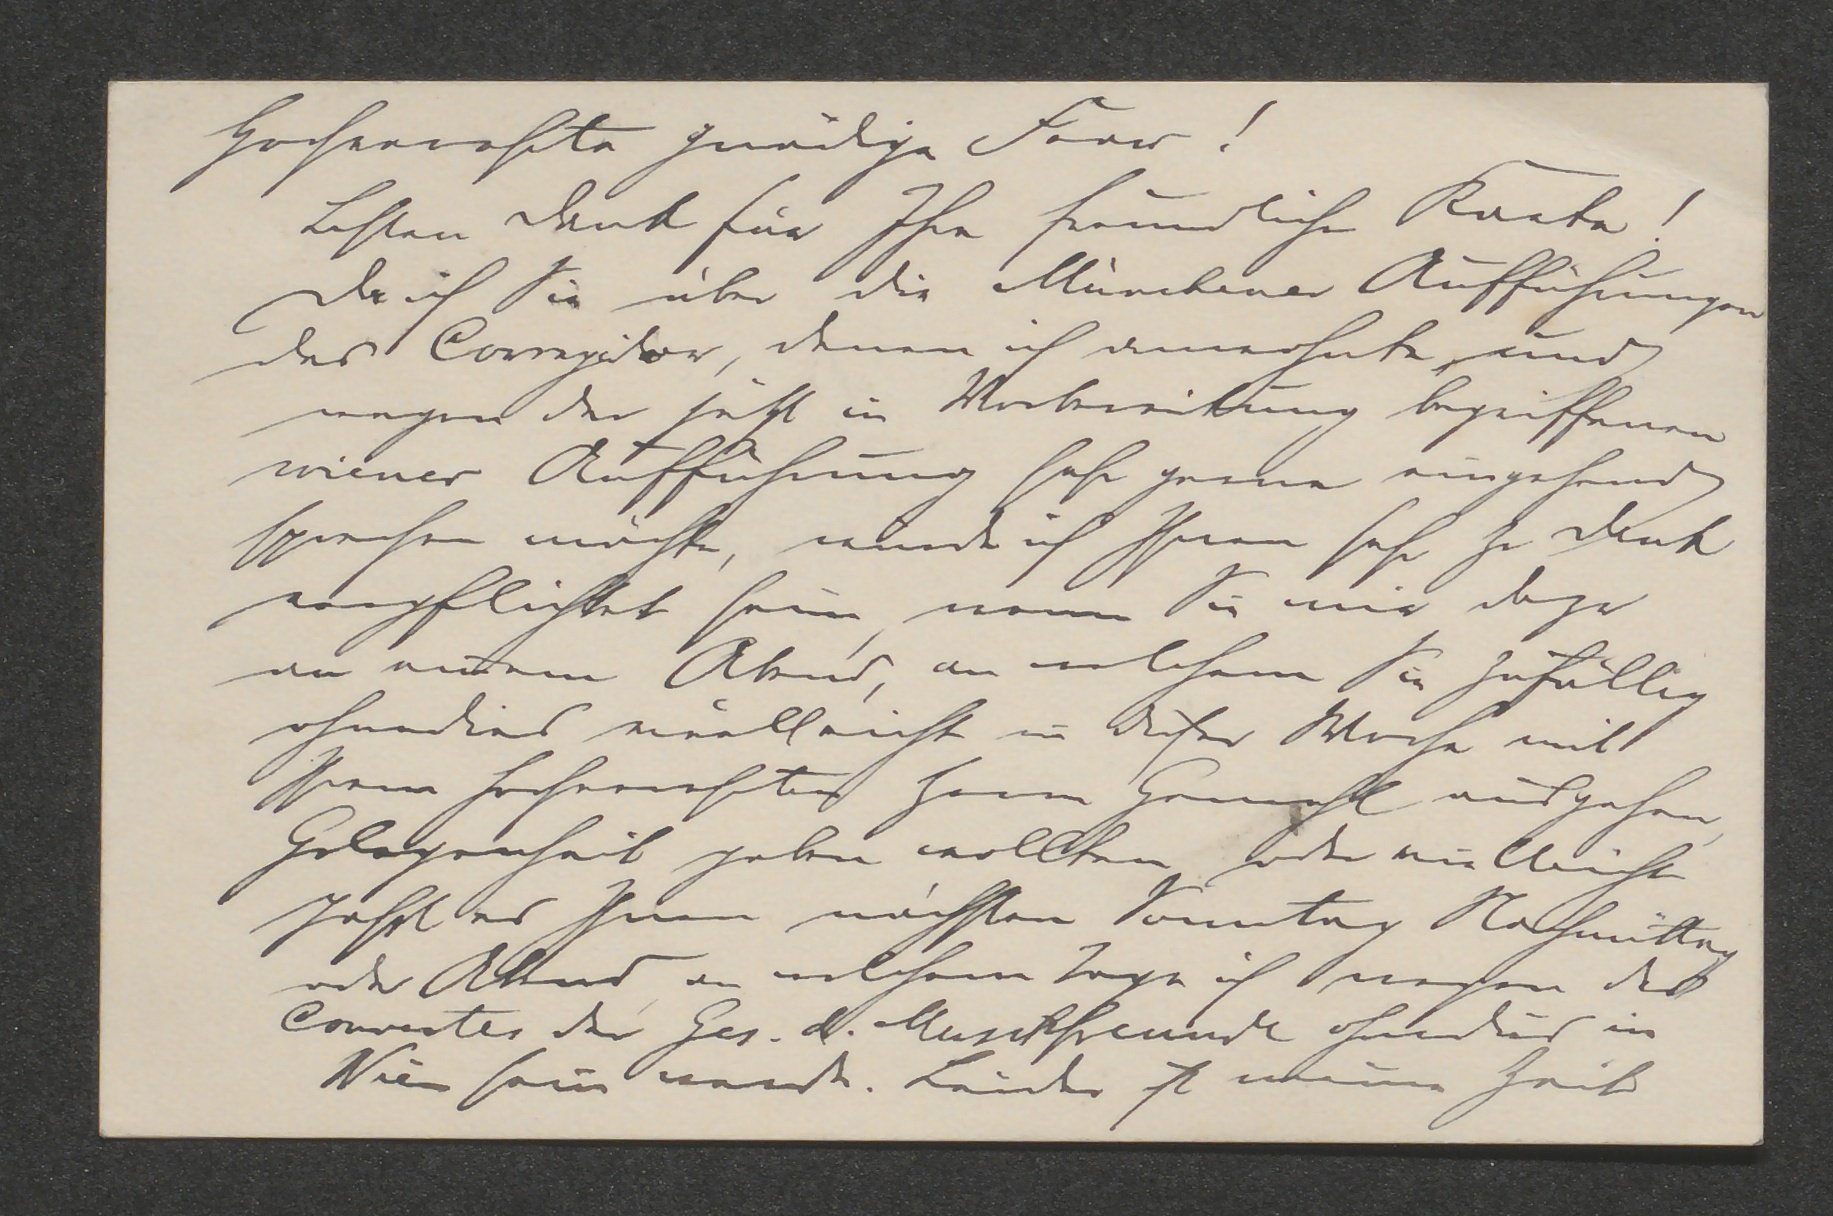 Hochverehrte gnädige Frau!
Besten Dank für Ihre freundliche Karte!
Da ich Sie über die Münchener Aufführungen
des Corregidor, denen ich anwohnte, und
wegen der jetzt in Vorbereitung begriffenen
wiener Aufführung sehr gerne eingehend
sprechen möchte, würde ich Ihnen sehr zu Dank
verpflichtet sein, wenn Sie mir dazu
an einem Abend, an welchem Sie zufällig
ohnedies vielleicht in dieser Woche mit
Ihrem hochverehrten Herrn Gemahl ausgehen,
Gelegenheit geben wollten, oder vielleicht
paßt es Ihnen nächsten Sonntag Nachmittag
oder Abend, an welchem Tage ich wegen des
Concertes der Ges. d. Musikfreunde ohnedies in
Wien sein werde. Leider ist meine Zeit